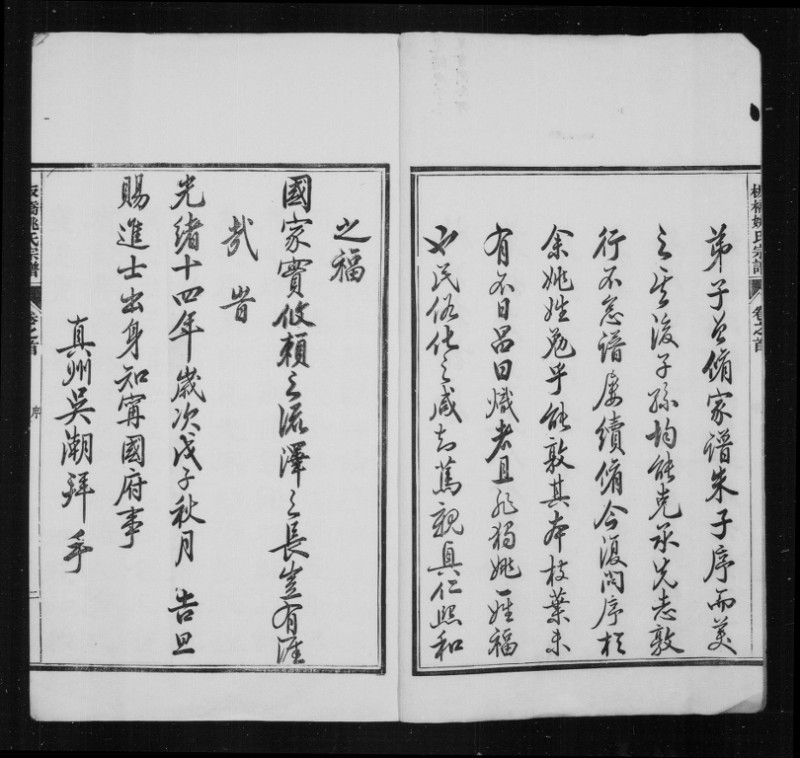 板橋姚氏宗譜 卷之首
弟子曾脩家譜朱子序而美
之其後子孫均能克承先志敦
行不怠譜屢續脩今復問序於
余姚姓勉乎能敦其本枝葉未
有不日昌日熾者且非獨姚姓福
也民俗化之咸知篤親真仁熙和
之福
國家實攸賴之流澤之長豈有涯
哉 旹
光緒十四年歲次戊子秋月 吉旦
賜進士出身知甯國府事
真州吳潮拜手
板橋姚氏宗譜 卷之首 序 二